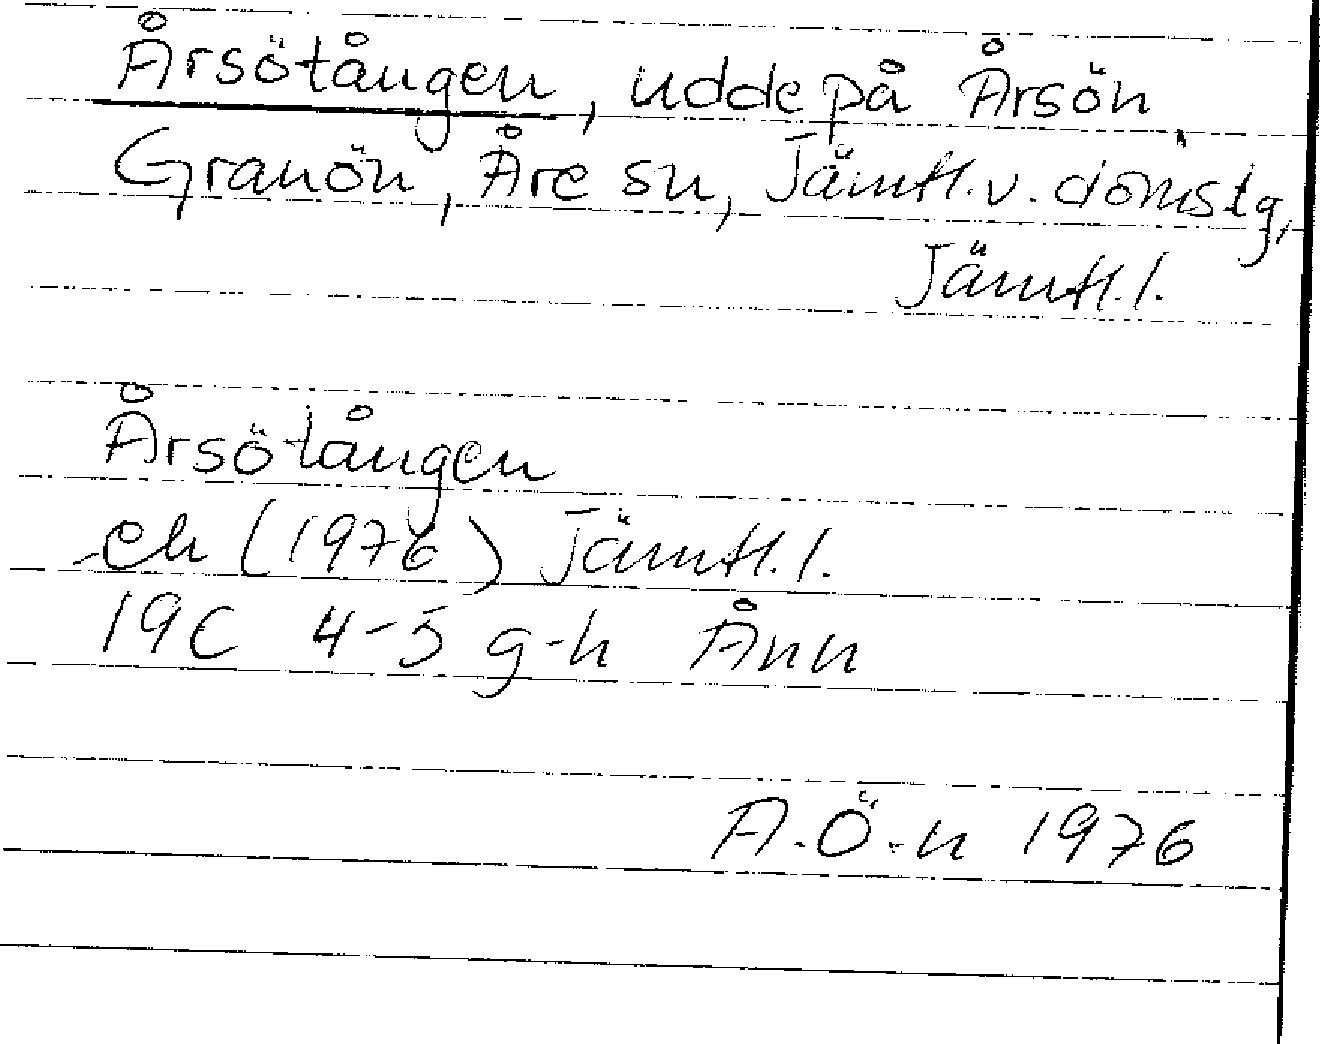 Årsötången, udde på Årsön,
Granön, Åre sn, Jämtl.v. domstg,
Jämtl.l.
Årsötången
ek (1976) Jämtl.l.
19C 4-5 g-h Ånn
A.Ö-n 1976